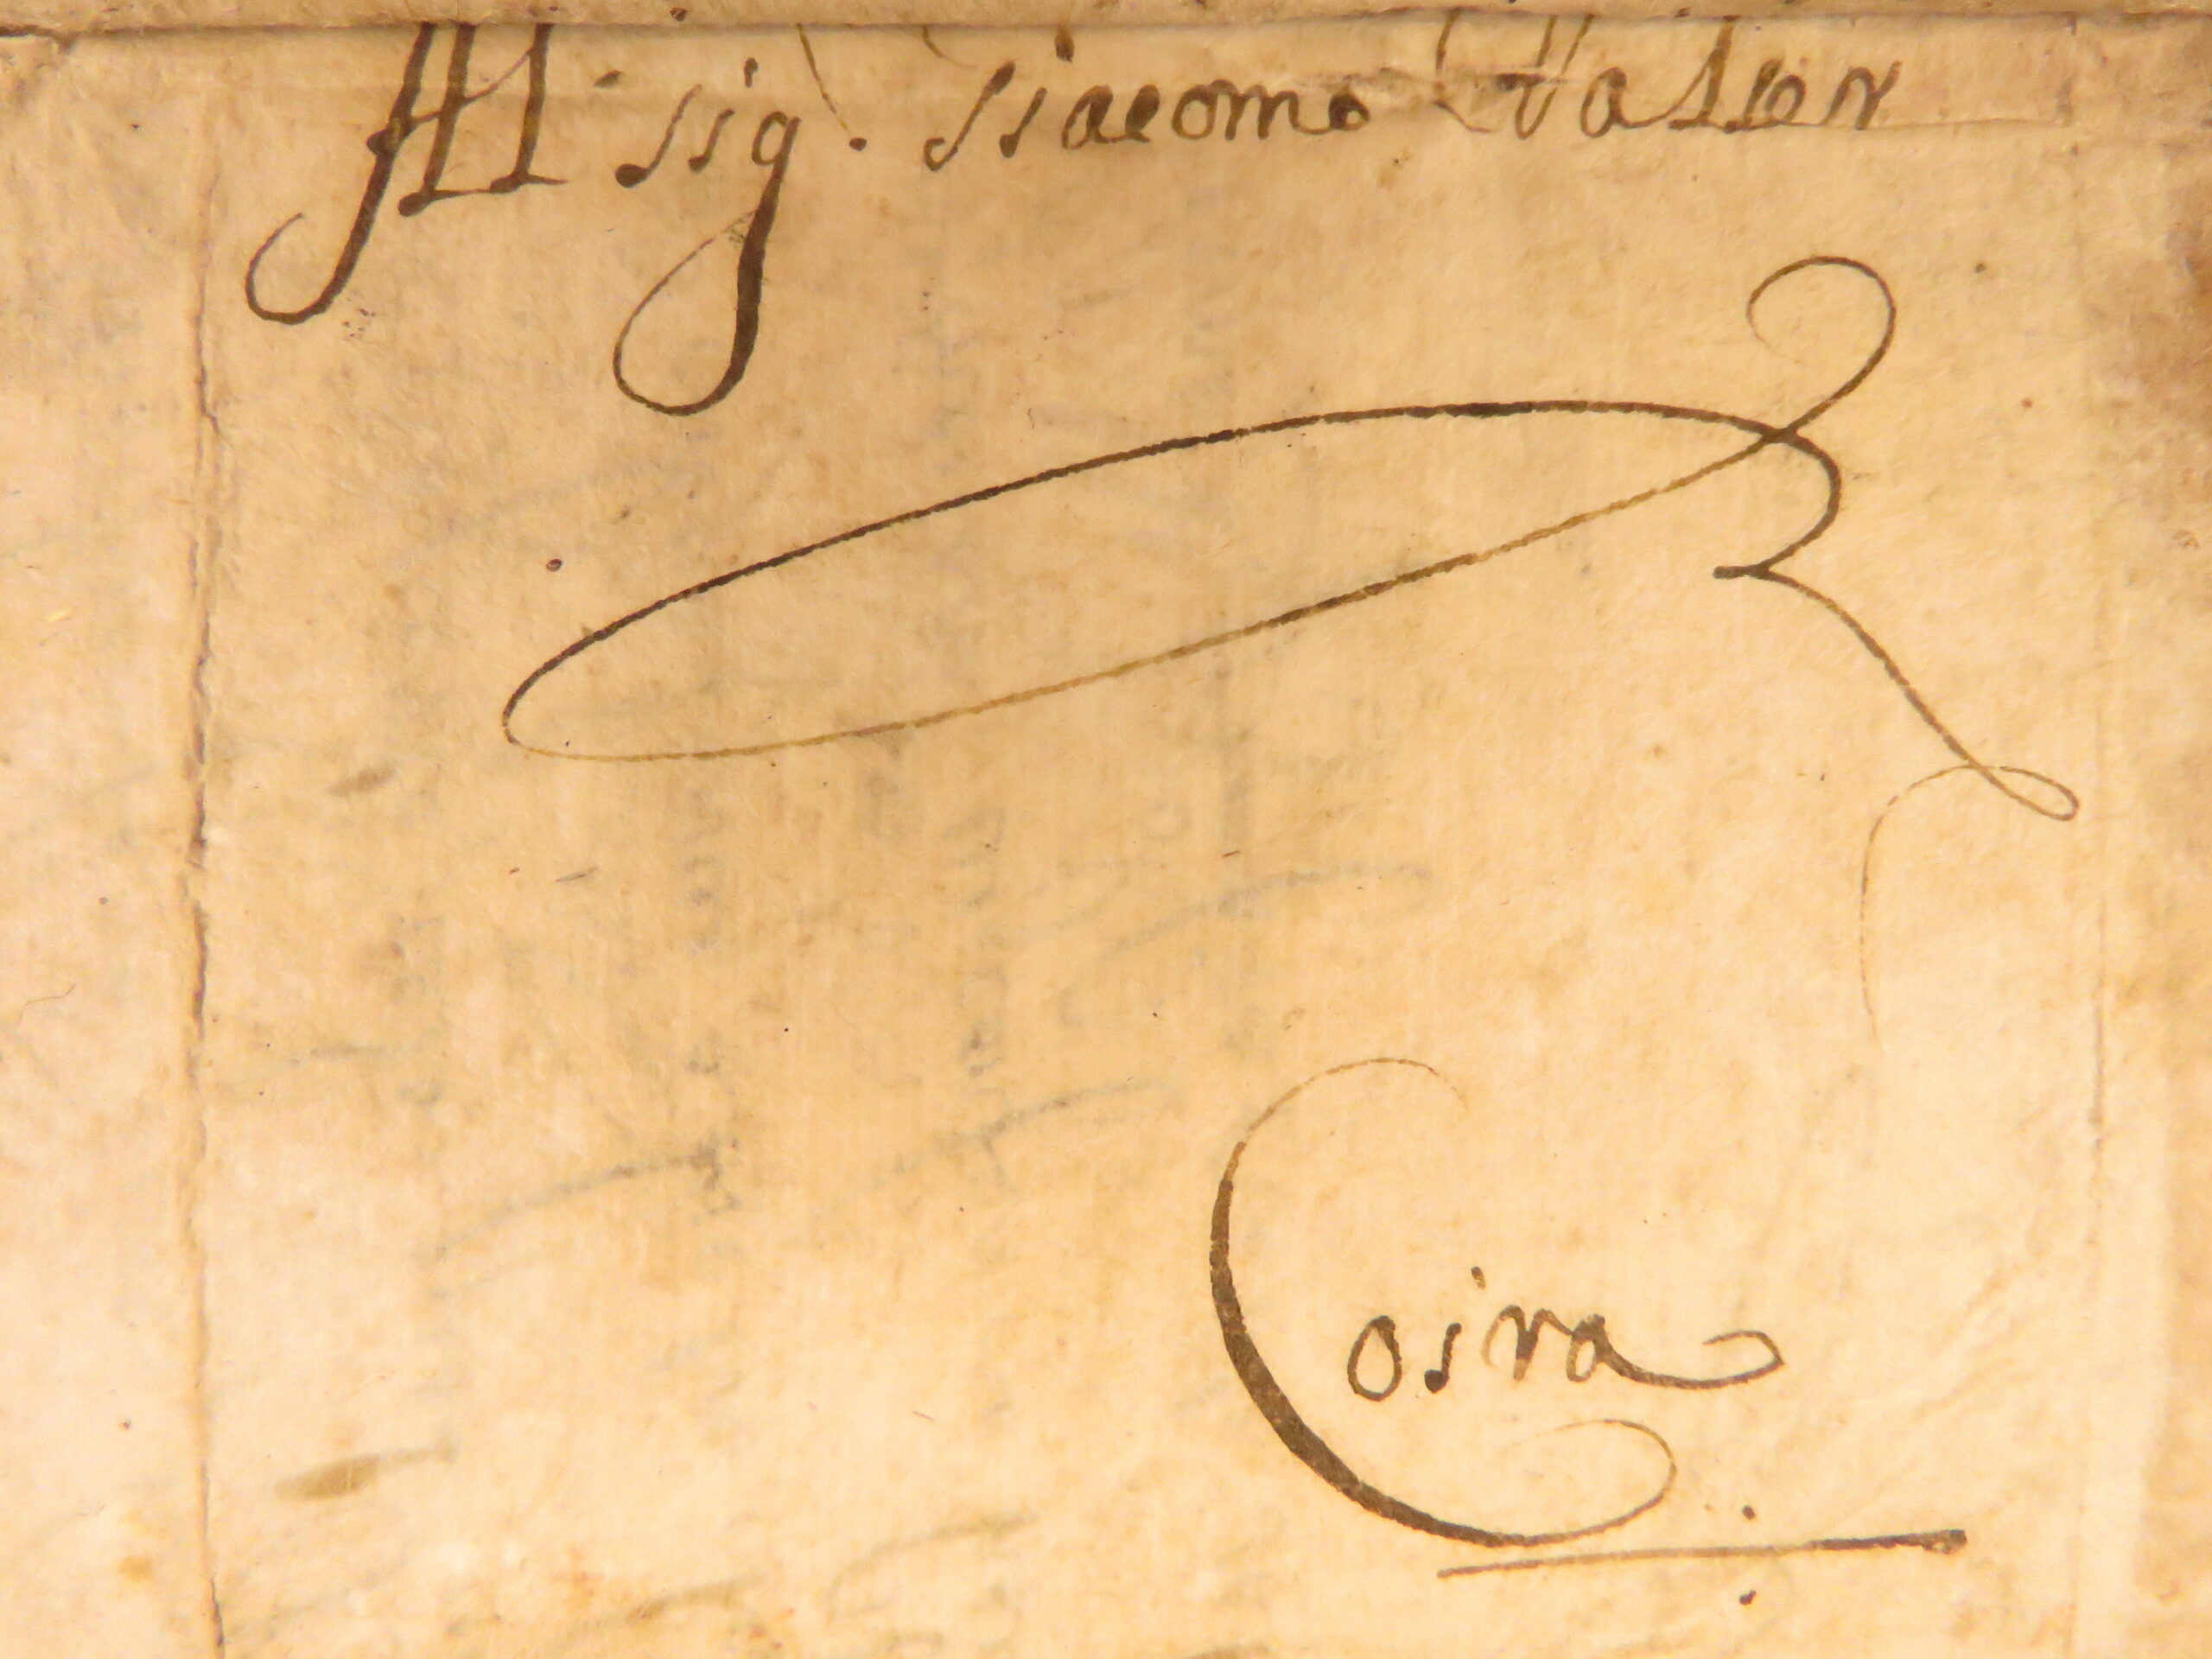 Al sig. Giacomo
Coira